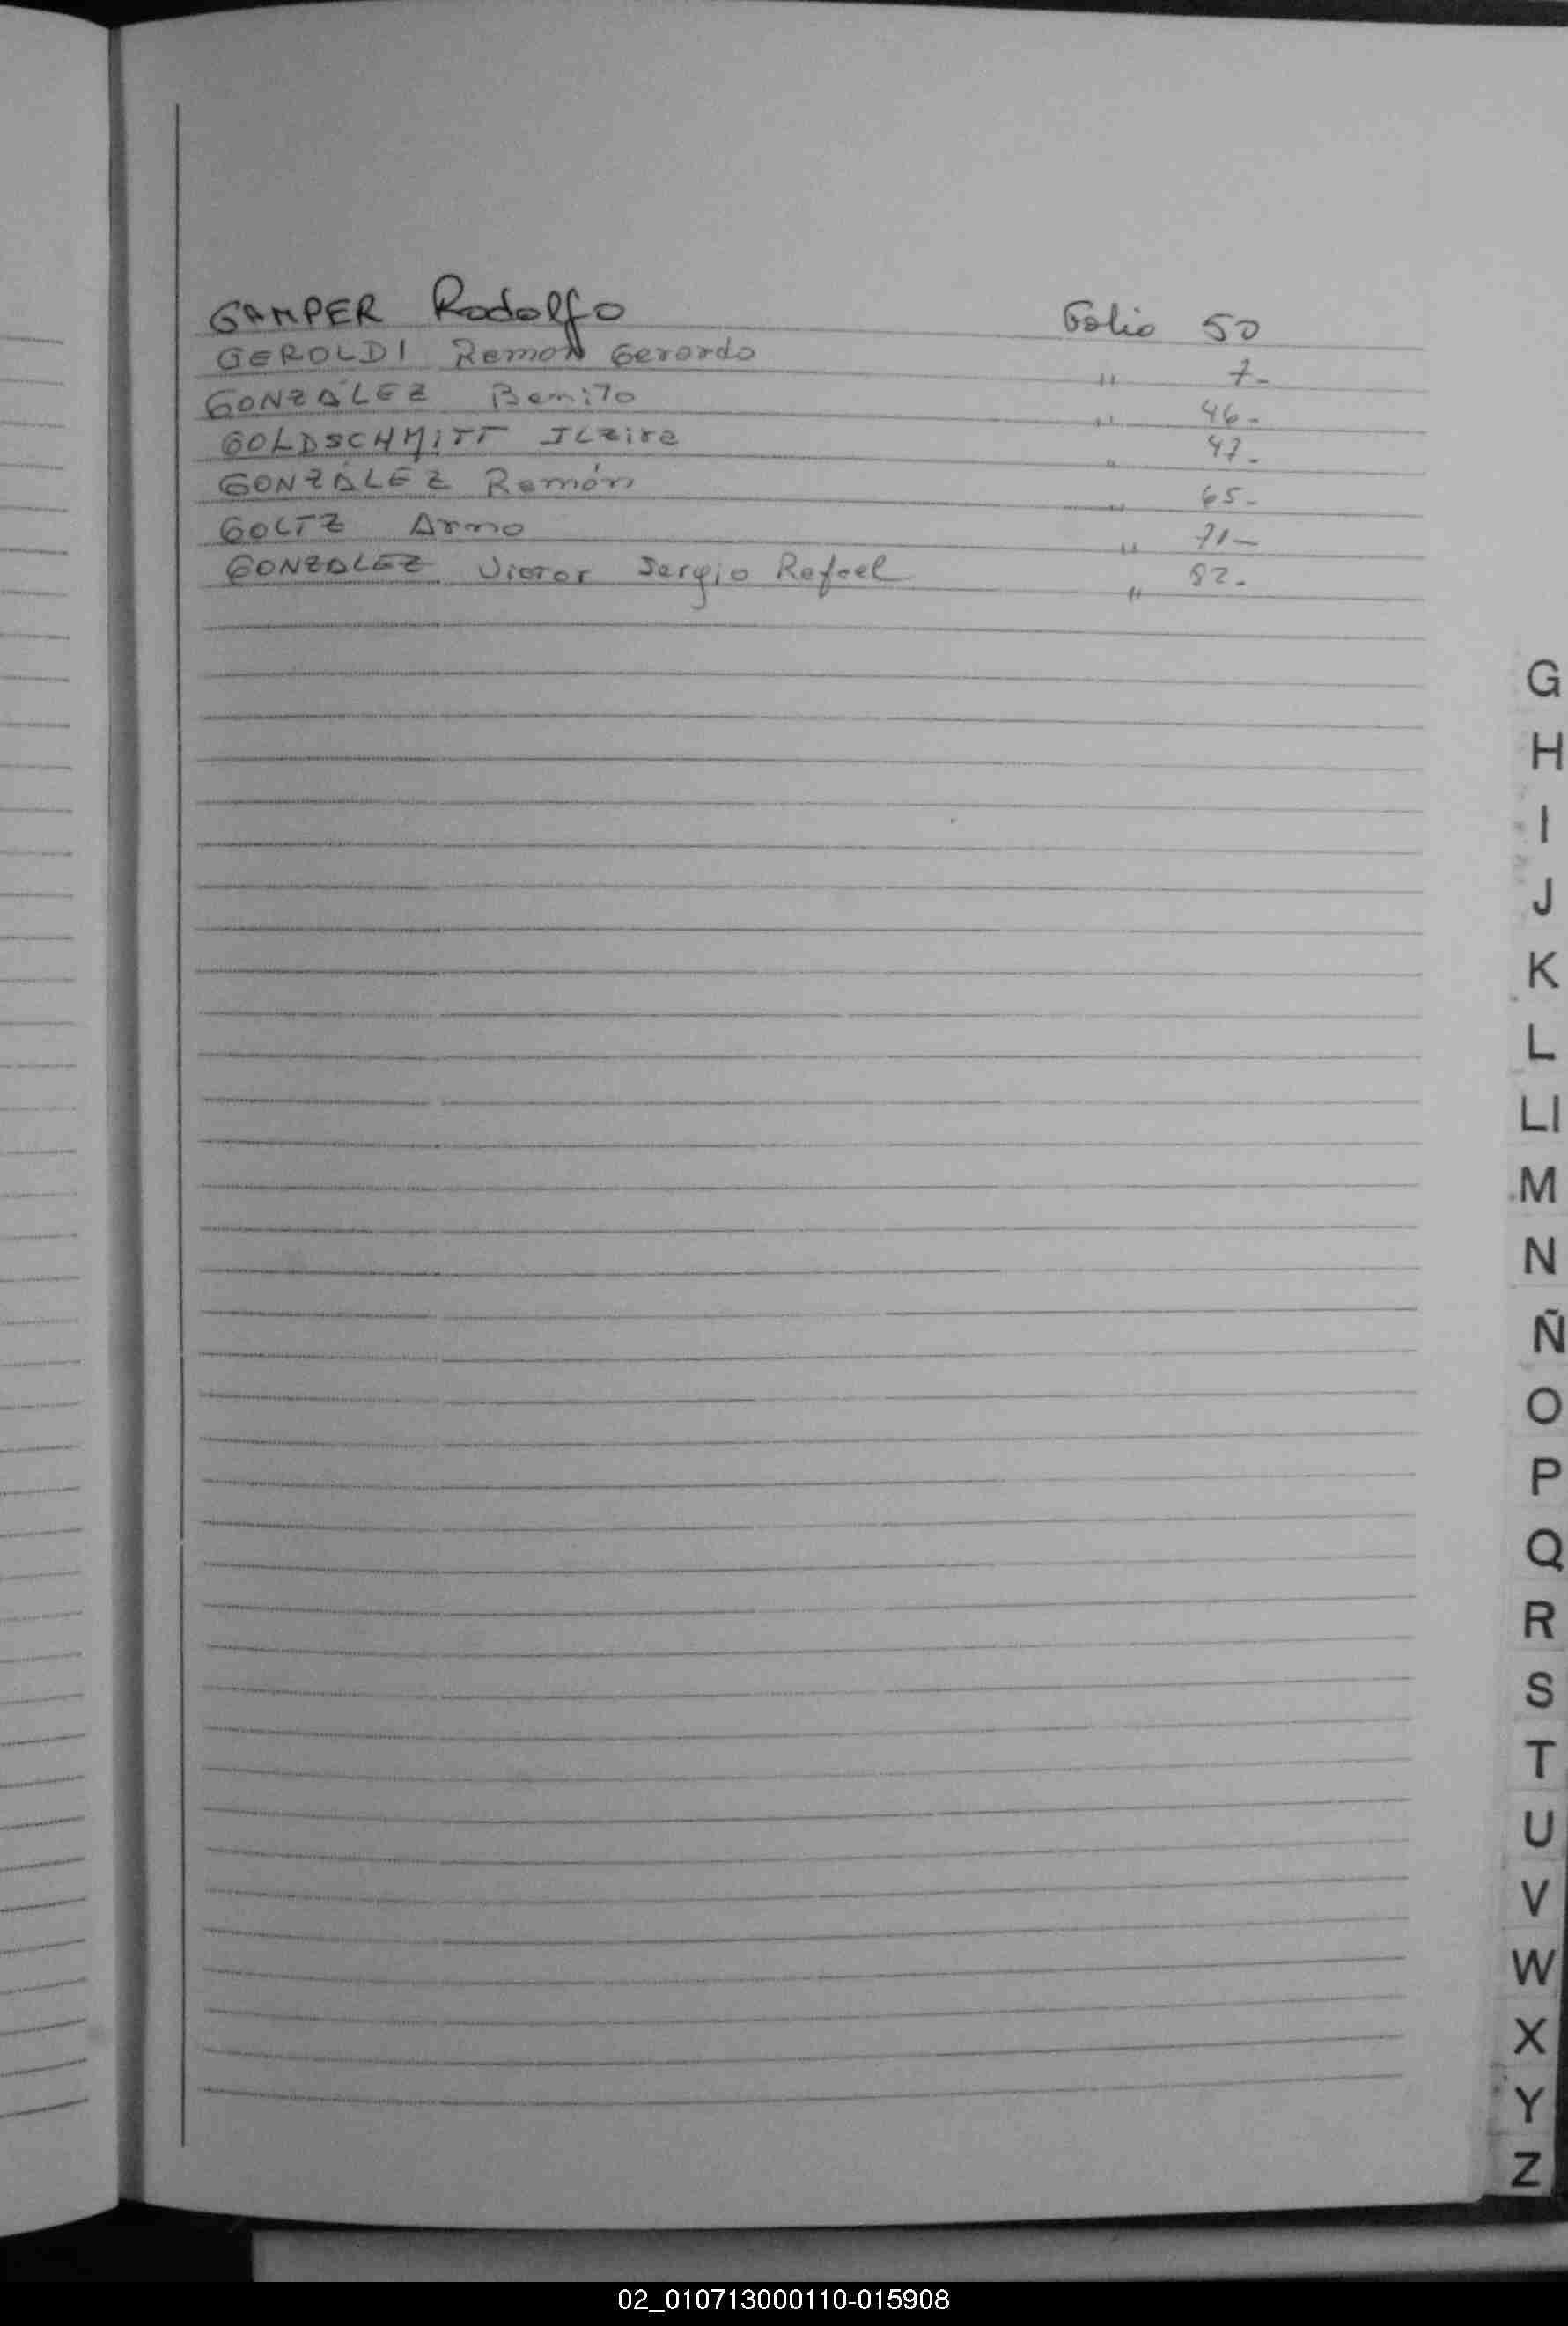 GAMPER Rodolfo Folio 50
GEROLDI Ramon Gerardo " 7-
GONZÁLEZ Benito " 46-
GOLDSCHMITT " 47-
GONZÁLEZ Ramón " 65-
GOLTZ Arno " 71-
GONZALEZ Victor Sergio Rafael " 82-
G
H
I
J
K
L
Ll
M
N
Ñ
O
P
Q
R
S
T
U
V
W
X
Y
Z
02_010713000110-015908